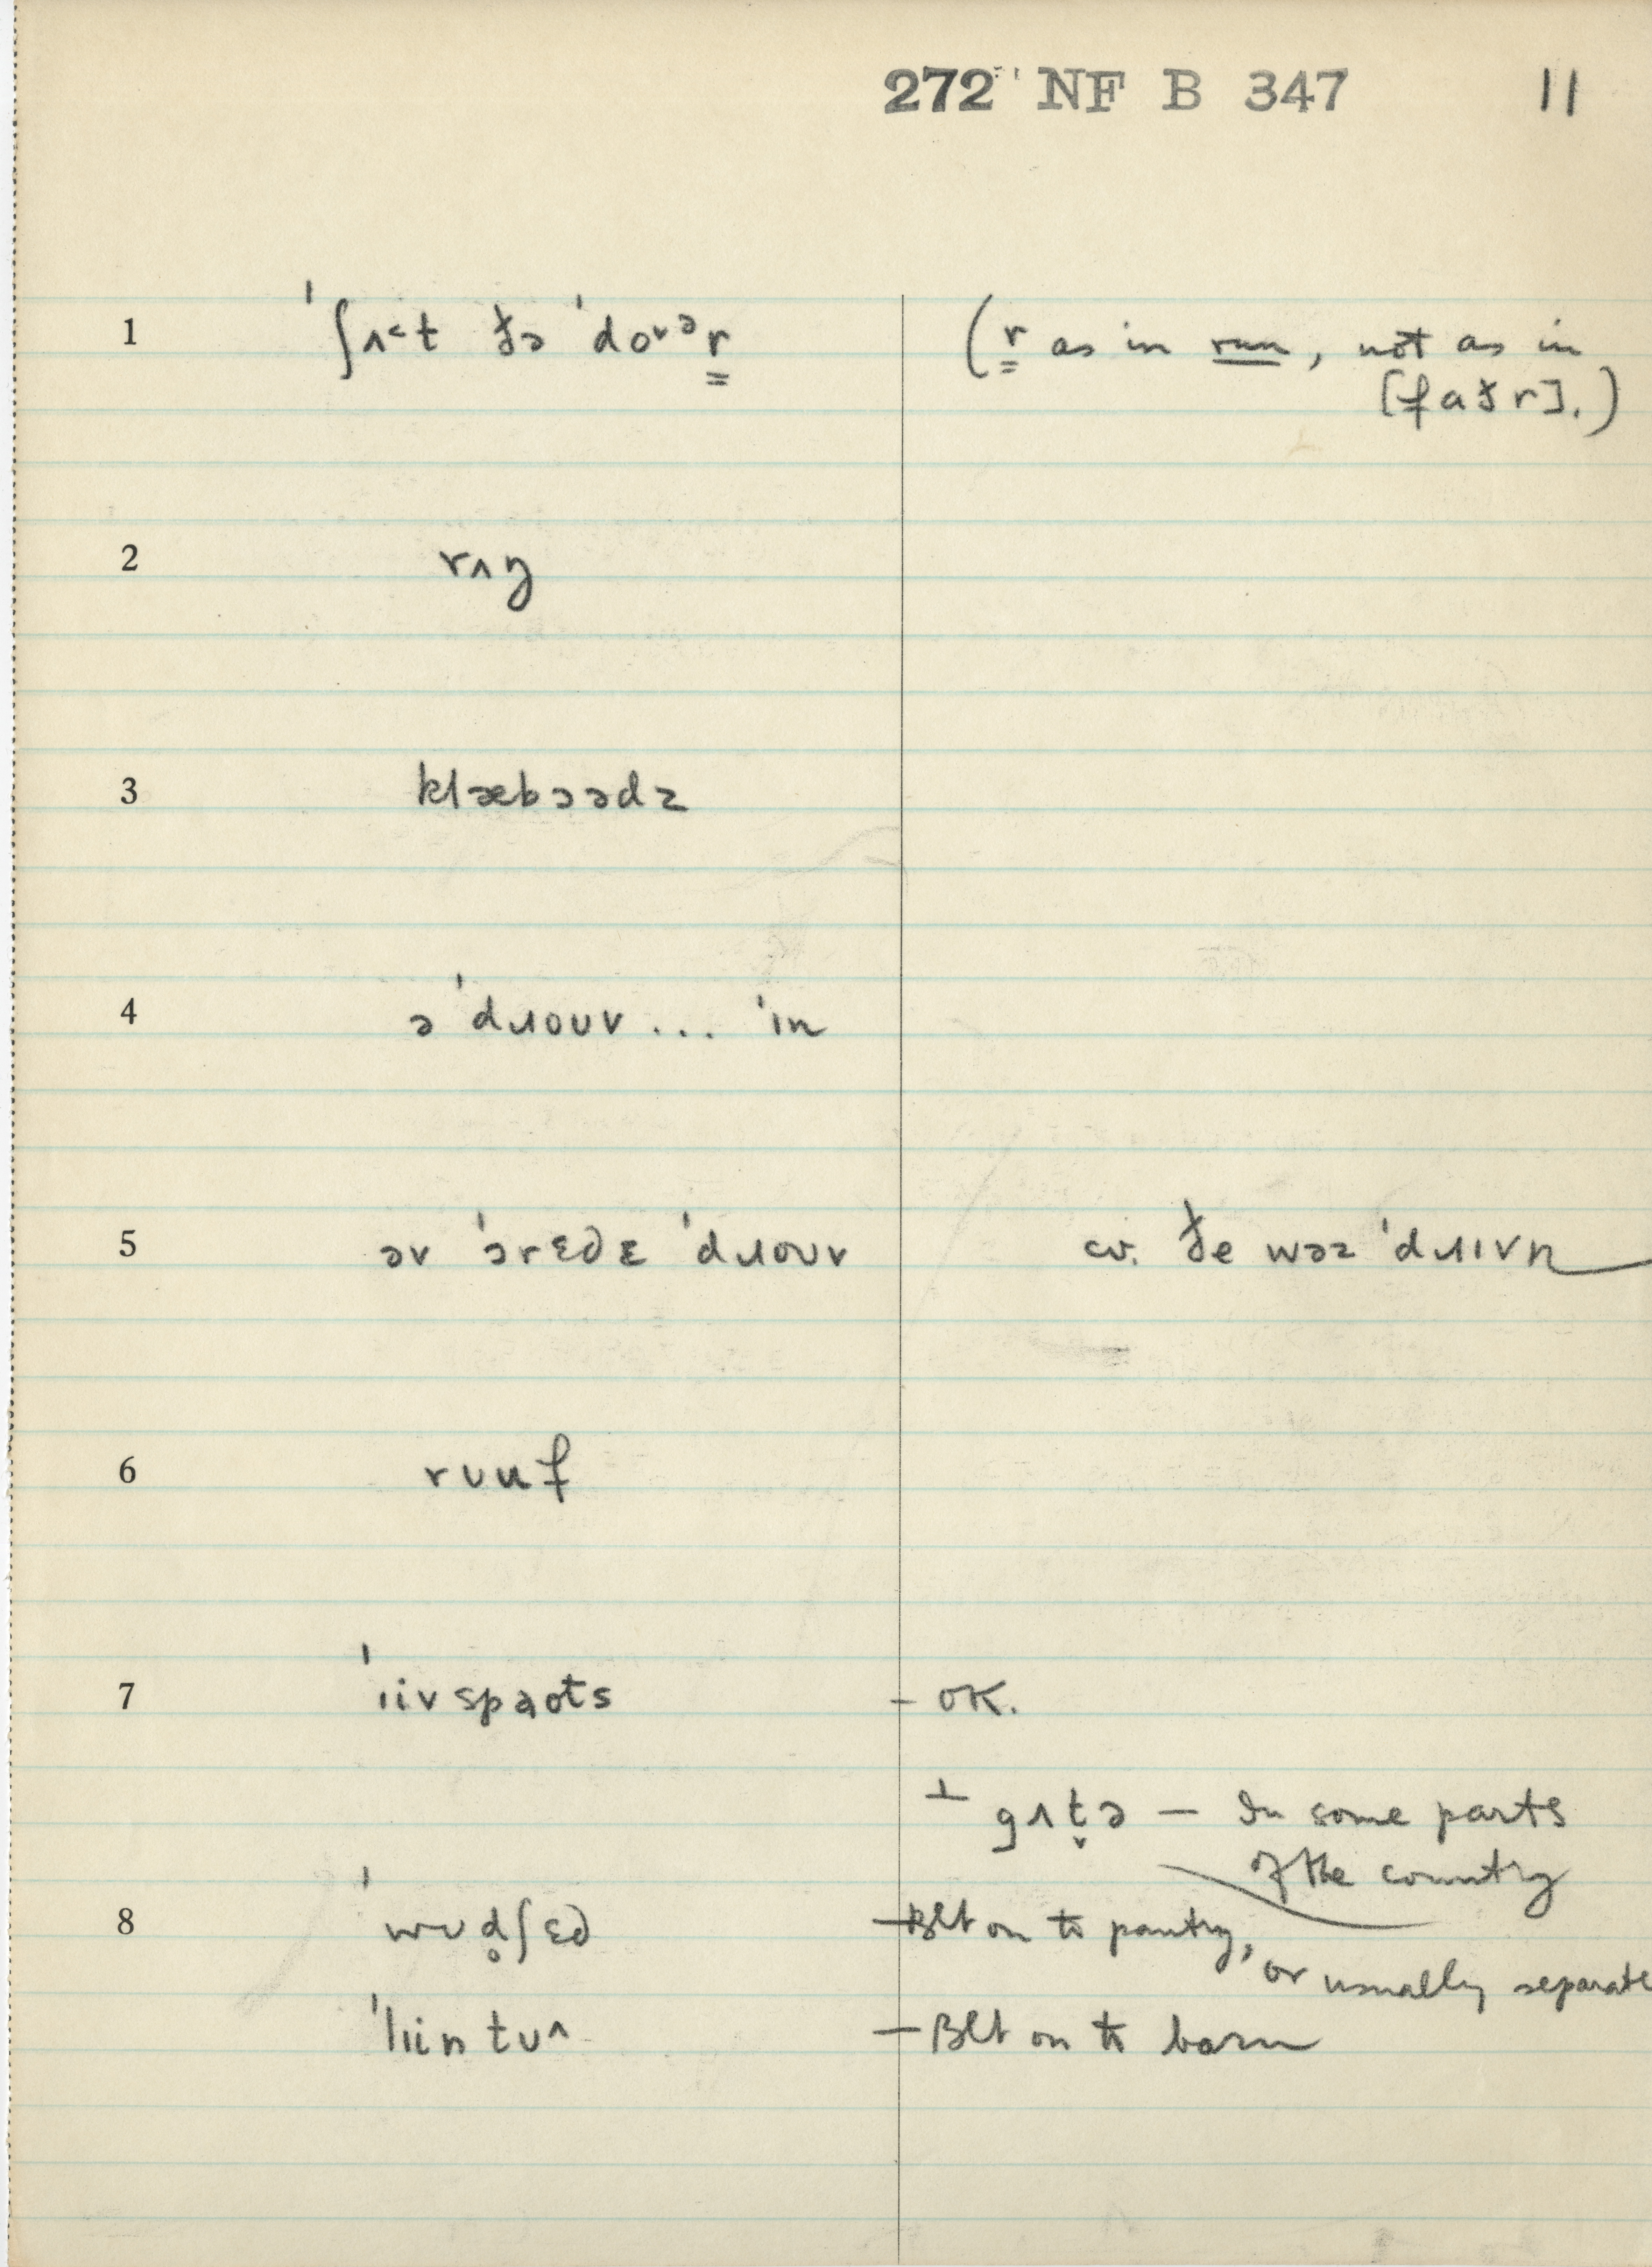 272 NF B 347 11
1 ˈʃʌ˂t ðə ˈdoᵛᵊr (r as in run, not as in
[faðr].)
2 rʌŋ
3 klæbɔədz
4 ə ˈdɹouv... ˈɪn
5 əv ˈɔrɛdɛ ˈdɹouv cv. ðe wəz ˈdɹɪvn
6 rʊuf
7 ˈɪivspaots - OK.
⊥ gʌt̬ə — In some parts
of the country
8 ˈwʊd̥ʃɛd — Blt on to pantry,
or usually separate
ˈlɪin tʊ^ — Blt on to barn